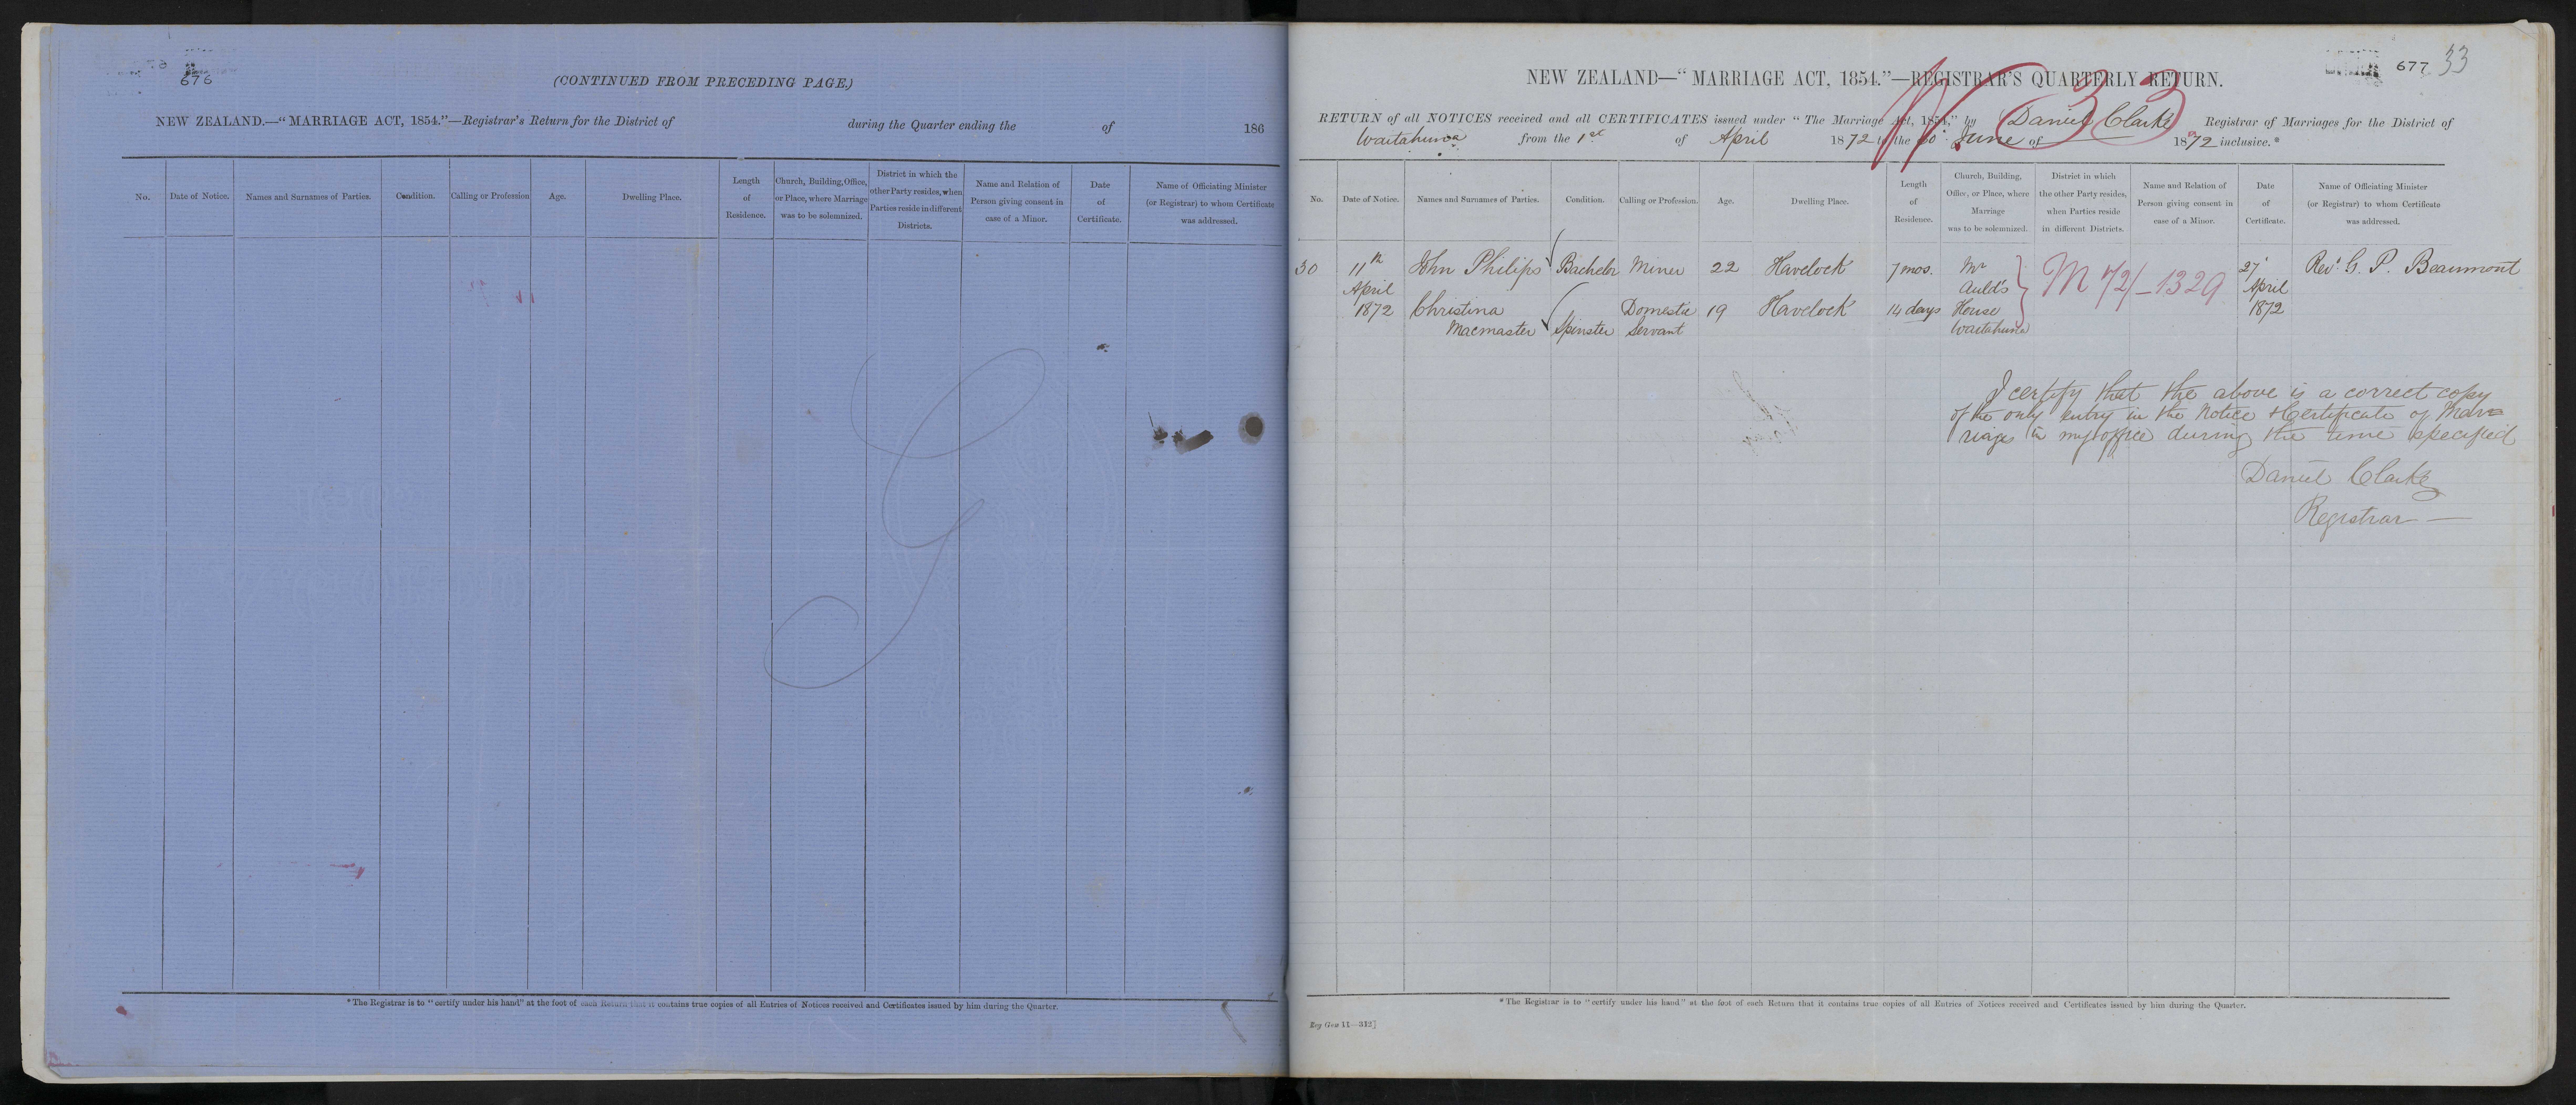 676
(CONTINUED FROM PRECEDING PAGE.)
NEW ZEALAND.—“MARRIAGE ACT, 1854.”—Registrar's Return for the District of during the Quarter ending the of 186
No. Date of Notice. Names and Surnames of Parties. Condition. Calling or Profession Age. Dwelling Place. Length of Residence. Church, Building, Office, or Place, where Marriage was to be solemnized. District in which the other Party resides, when Parties reside in different Districts. Name and Relation of Person giving consent in case of a Minor. Date of Certificate. Name of Officiating Minister (or Registrar) to whom Certificate was addressed.
*The Registrar is to “certify under his hand” at the foot of each Return that it contains true copies of all Entries of Notices received and Certificates issued by him during the Quarter.
677 33
NEW ZEALAND—“MARRIAGE ACT, 1854.”—REGISTRAR'S QUARTERLY RETURN.
33
RETURN of all NOTICES received and all CERTIFICATES issued under “The Marriage Act, 1854,” by Daniel Clarke Registrar of Marriages for the District of
Waitahuna from the 1st of April 1872 to the 30 June of 1872 inclusive.*
No. Date of Notice. Names and Surnames of Parties. Condition. Calling or Profession. Age. Dwelling Place. Length of Residence. Church, Building, Office, or Place, where Marriage was to be solemnized. District in which the other Party resides, when Parties reside in different Districts. Name and Relation of Person giving consent in case of a Minor. Date of Certificate. Name of Officiating Minister (or Registrar) to whom Certificate was addressed.
30 11th John Philips Bachelor Miner 22 Havelock 7 mos. Mr M 72/-1329 27 Revd G. P. Beaumont
April Auld's April
1872 Christina Domestic 19 Havelock 14 days House 1872
Macmaster Spinster Servant Waitahuna
I certify that the above is a correct copy
of the only entry in the Notice & Certificate of Mar=
riages in my office during the time specified
Daniel Clarke
Registrar —
*The Registrar is to “certify under his hand” at the foot of each Return that it contains true copies of all Entries of Notices received and Certificates issued by him during the Quarter.
Reg Gen 11—312]